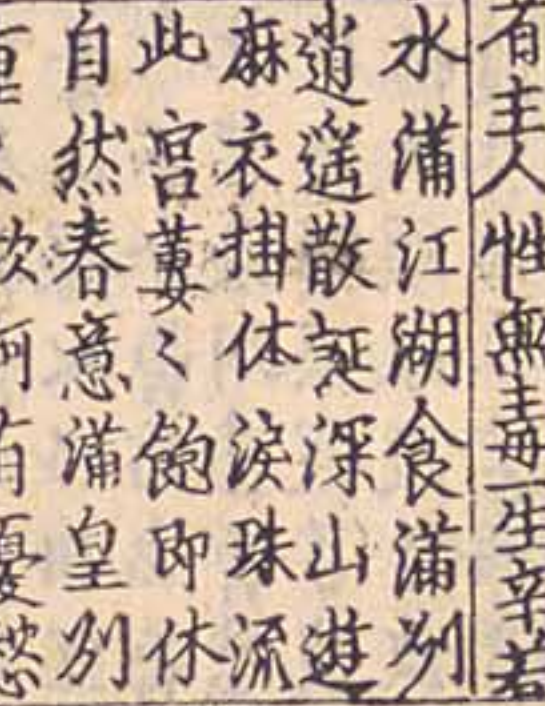 有主人性無毒一生辛苦
水滿江湖食滿州
逍遥散誕深山遊
麻衣掛体淚珠流
此宮萋〻飽即休
自然春意滿皇州
有憂愁